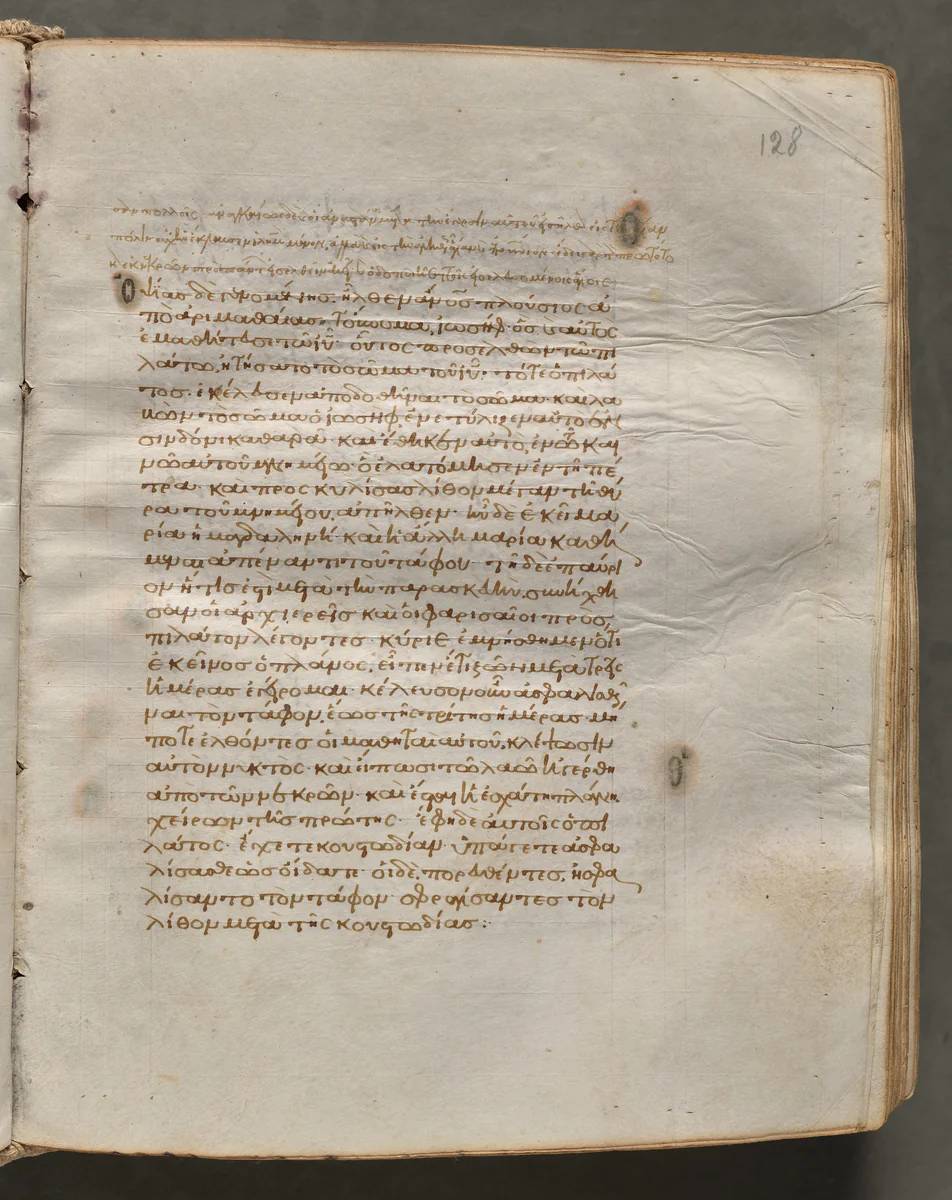 128
Ὀψίας δὲ γενομένης. ἦλθεν ἄνος πλούσιος ἀ
πὸ ἀριμαθαίας. τοὔνομα, ἰωσὴφ. ὃς καὶ αὐτὸς
ἐμαθήτευσε τῶ ιυ. οὗτος προσελθὼν τῶ πι
λάτω, ἠτήσατο τὸ σῶμα τοῦ ιυ. τότε ὁ πιλά
τος. ἐκέλευσεν ἀποδοθῆναι τὸ σῶμα. καὶ λα
βὼν τὸ σῶμα ὁ ἰωσὴφ, ἐνετύλιξεν αὐτὸ ἐν
σινδόνι καθαρᾶ. καὶ ἔθηκεν αὐτὸ, ἐν τῶ και
νῶ αὐτοῦ μνημείω. ὃ ἐλατόμησεν ἐν τῆ πέ
τρα. καὶ προσκυλίσας λίθον μέγαν τῆ θύ
ρα τοῦ μνημείου, ἀπῆλθεν. ἦν δὲ ἐκεῖ μα
ρία ἡ μαγδαληνὴ. καὶ ἡ ἄλλη μαρία καθή
μεναι ἀπέναντι τοῦ τάφου. τῆ δὲ ἐπαύρι
ον ἥτις ἐστὶ μετὰ τὴν παρασκευὴν. συνήχθη
σαν οἱ ἀρχιερεῖς καὶ οἱ φαρισαῖοι πρὸς
πιλάτον λέγοντες. κύριε ἐμνήσθημεν ὅτι
ἐκεῖνος ὁ πλάνος. εἶπεν ἔτι ζῶν μετὰ τρεῖς
ἡμέρας ἐγείρομαι. κέλευσον οὖν ἀσφαλισθῆ
ναι τὸν τάφον, ἕως τῆς τρίτης ἡμέρας. μή
ποτε ἐλθόντες οἱ μαθηταὶ αὐτοῦ, κλέψωσιν
αὐτὸν νυκτὸς. καὶ εἴπωσι τῶ λαῶ ἠγέρθη
ἀπὸ τῶν νεκρῶν. καὶ ἔσται ἡ ἐσχάτη πλάνη.
χείρων τῆς πρώτης. ἔφη δὲ αὐτοῖς ὁ πι
λάτος. ἔχετε κουστωδίαν. ὑπάγετε ἀσφα
λίσασθε ὡς οἴδατε. οἱ δὲ, πορευθέντες. ἠσφα
λίσαντο τὸν τάφον. σφραγίσαντες τὸν
λίθον μετὰ τῆς κουστωδίας: